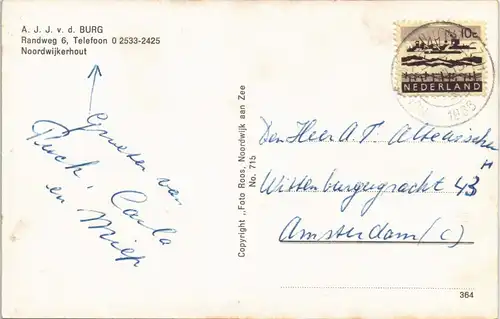 A. J. J. v. d. BURG
Randweg 6, Telefoon 0 2533-2425
Noordwijkerhout
Groeten van
Puck, Carla
en Miep
Copyright „Foto Roos, Noordwijk aan Zee
No. 715
10c
NEDERLAND
Den Heer A.T.
Wittenburgergracht 43
H
Amsterdam (C)
364